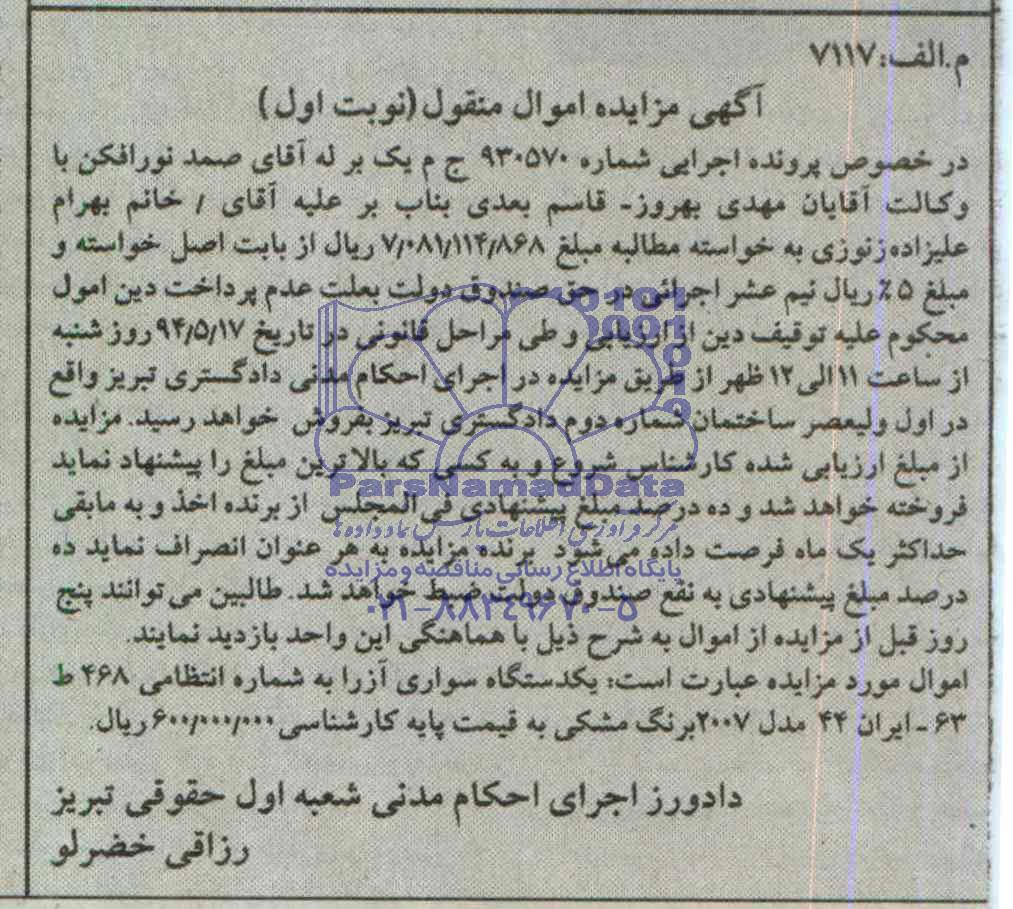 م.الف: ۷۱۱۷
آگهی مزایده اموال منقول (نوبت اول)
در خصوص پرونده اجرایی شماره ۹۳۰۵۷۰ ج م یک بر له آقای صمد نورافکن با
وکالت آقایان مهدی بهروز- قاسم بعدی بناب بر علیه آقای / خانم بهرام
علیزاده زنوزی به خواسته مطالبه مبلغ ۷/۰۸۱/۱۱۴/۸۶۸ ریال از بابت اصل خواسته و
مبلغ ۵٪ ریال نیم عشر اجرائی در حق صندوق دولت بعلت عدم پرداخت دین امول
محکوم علیه توقیف دین از ارزیابی و طی مراحل قانونی در تاریخ ۹۴/۵/۱۷ روز شنبه
از ساعت ۱۱ الی ۱۲ ظهر از طریق مزایده در اجرای احکام مدنی دادگستری تبریز واقع
در اول ولیعصر ساختمان شماره دوم دادگستری تبریز بفروش خواهد رسید. مزایده
از مبلغ ارزیابی شده کارشناس شروع و به کسی که بالاترین مبلغ را پیشنهاد نماید
ParsNamadData
فروخته خواهد شد و ده درصد مبلغ پیشنهادی فی‌المجلس از برنده اخذ و به مابقی
مرکز فرآوری اطلاعات پارس نماد داده ها
حداکثر یک ماه فرصت داده می‌شود برنده مزایده به هر عنوان انصراف نماید ده
پایگاه اطلاع رسانی مناقصه و مزایده
درصد مبلغ پیشنهادی به نفع صندوق دولت ضبط خواهد شد. طالبین می‌توانند پنج
۰۲۱-۸۸۳۴۹۶۷۰-۵
روز قبل از مزایده از اموال به شرح ذیل با هماهنگی این واحد بازدید نمایند.
اموال مورد مزایده عبارت است: یکدستگاه سواری آزرا به شماره انتظامی ۴۶۸ ط
۶۳ - ایران ۴۴ مدل ۲۰۰۷ برنگ مشکی به قیمت پایه کارشناسی ۶۰۰/۰۰۰/۰۰۰ ریال.
دادورز اجرای احکام مدنی شعبه اول حقوقی تبریز
رزاقی خضرلو